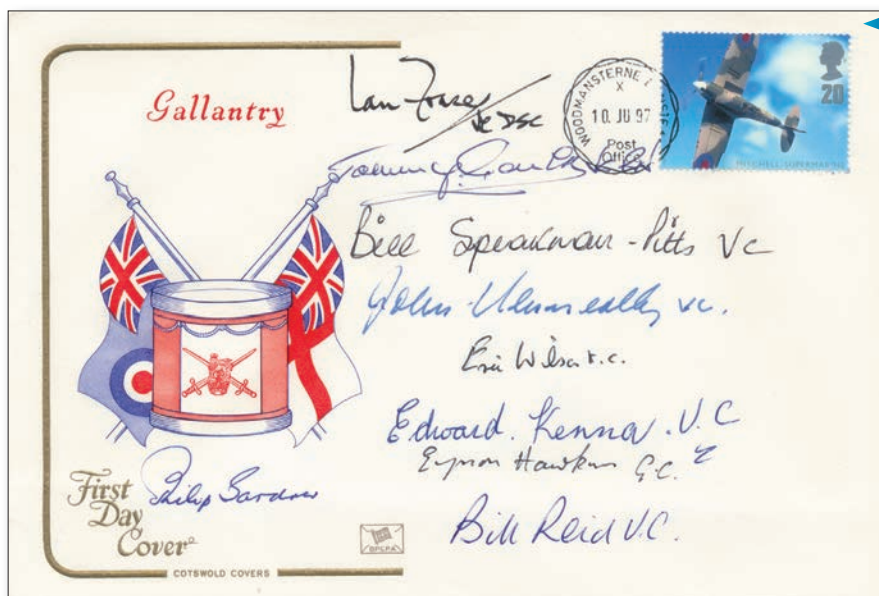 Gallantry
Ian Fraser VC DSC
WOODMANSTERNE
X
10 JU 97
Post
Office
20
MITCHELL SUPERMARINE
Tommy Gould VC
Bill Speakman-Pitts VC
John Kenneally VC.
Eric Wilson V.C.
Edward. Kenna. V.C
Eynon Hawkins G.C.
Bill Reid V.C.
Philip Gardner
First
Day
Cover
BPCPA
COTSWOLD COVERS